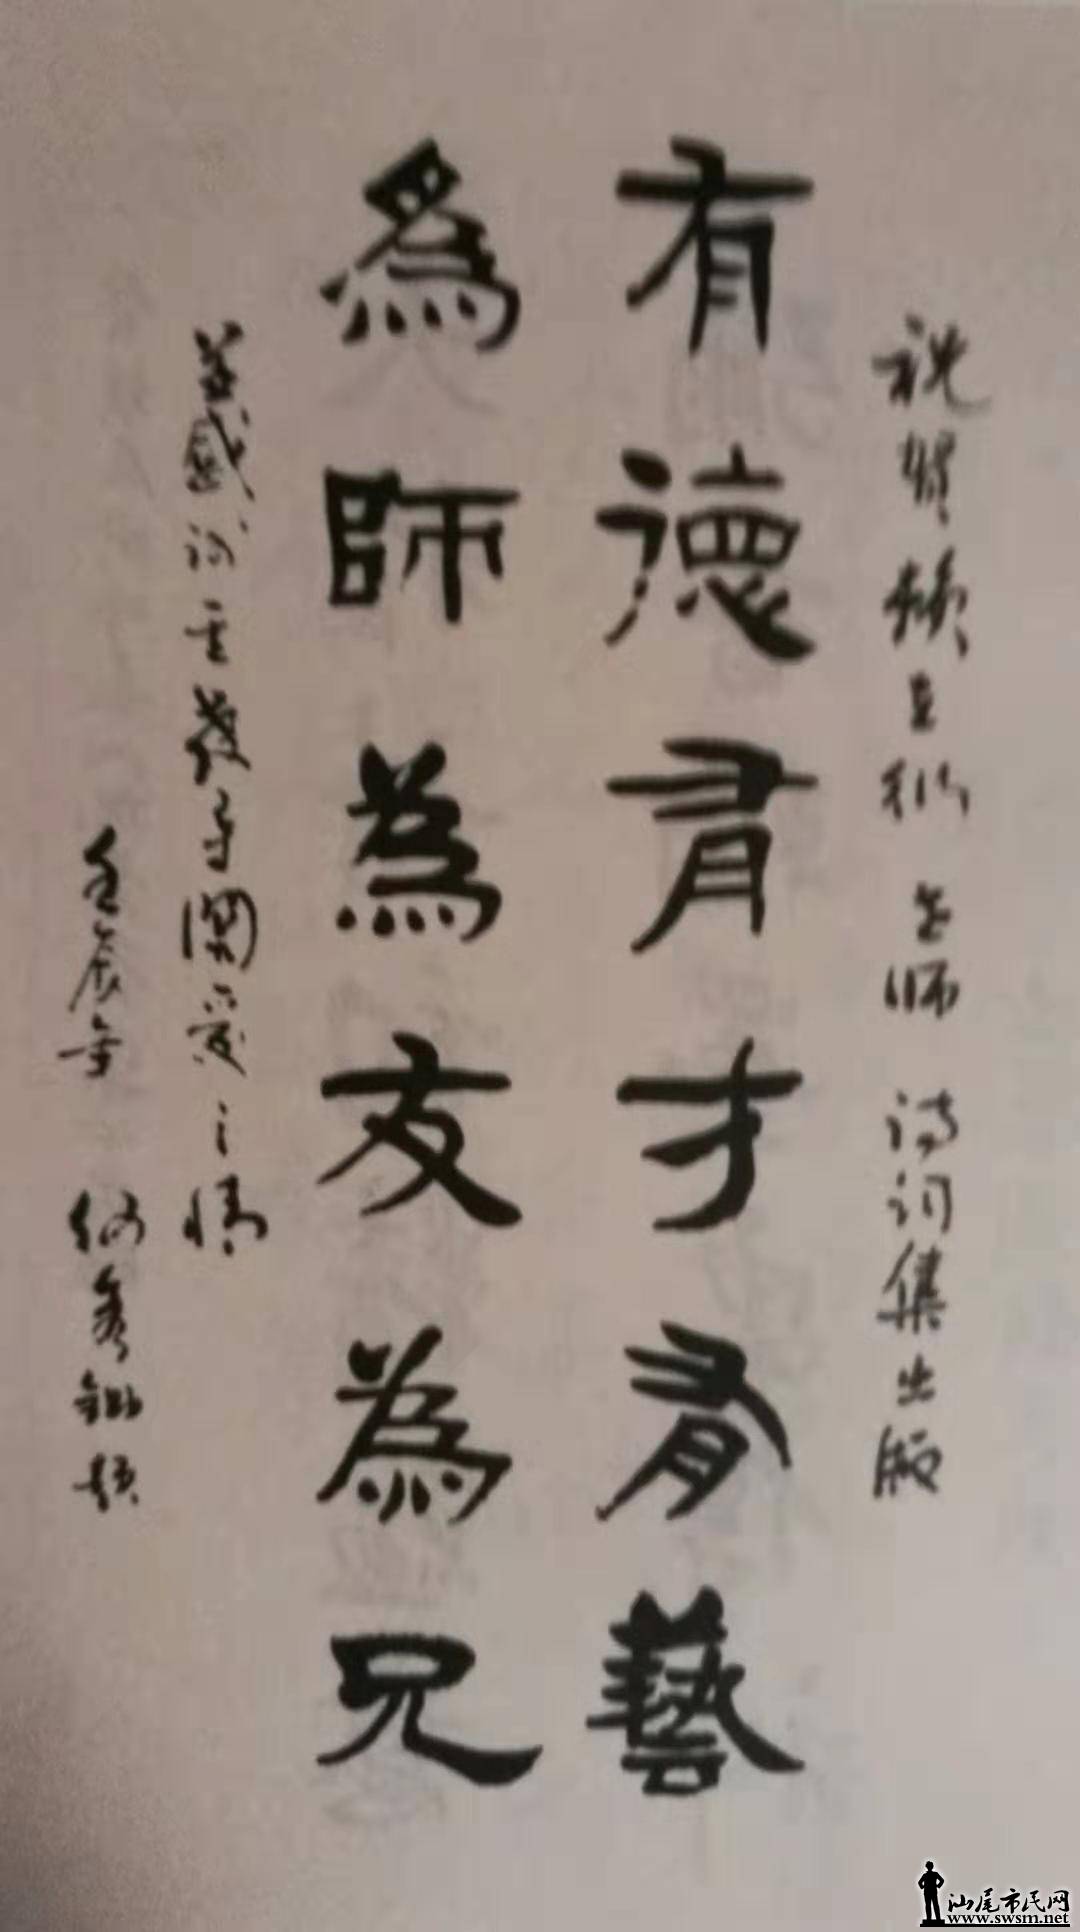 祝贺赖亚彬老师诗词集出版
有德有才有藝
為師為友為兄
并感謝主發予關愛之情
壬辰年 何 題
汕尾市民网
www.swsm.net